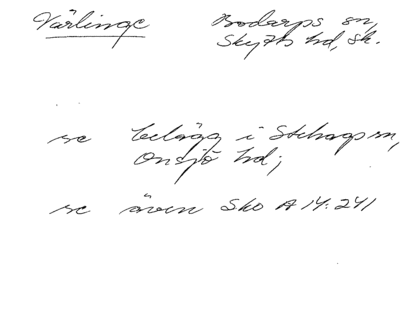 Värlinge Bodarps sn,
Skytts hd, Sk.
se belägg i Stehags sn,
Onsjö hd;
se även Sko A 14:241